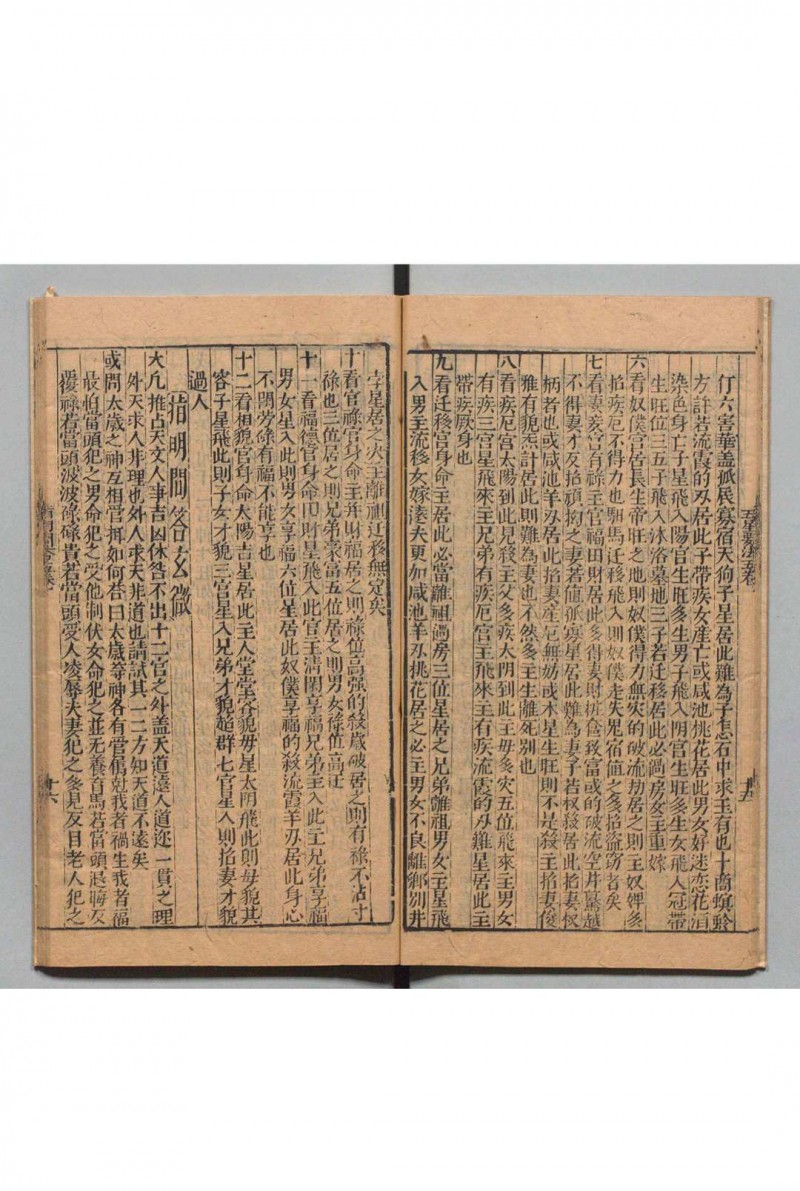 仃六害華盖孤辰寡宿天狗子星居此難為子息石中求玉有也十商螟蛉
方許若流霞的刃居此子帶疾女產亡或咸池桃花居此男女好迷恋花酒
染色身亡子星飛入陽宫生旺多生男子飛入阴宫生旺多生女飛入冠帶
生旺位三五子飛入沐浴墓地三子若迁移居此必過房女主重嫁
六看奴僕宫居長生帝旺之地則奴僕得力無灾的破流劫居之則主奴婢多
招疾厄不得力也馹馬迁移飛入則奴僕走失鬼宿值之多招盗窃者矣
七看妻妾宫有禄主官福田財居此多得妻財排翕致富或的破流空丼驀越
不得妻才反招頑拘之妻若龍孤寡星居此難為妻子若杈殺居此招妻杈
柄者也或咸池羊刃居此招妻産厄無妨或木星生旺則不是殺主招妻俊
雅有貌炁計居此則難為妻也不然多主生離死别也
八看疾厄宫太陽到此兄殺主父多疾太阴到此主毋多灾五位飛來主男女
有疾三宫星飛來主兄弟有疾厄宫主飛來主有疾流霞的刃難星居此主
帶疾厥身也
九看迁移宫身命主居此必當離祖過房三位星居之兄弟離祖男女主星飛
入男主流移女嫁湊夫更加咸池羊刃桃花居之必主男女不良離鄉别井
孛星居之火主離祖迁移無定矣
十看官禄宫身命主并財福居之則禄位高强的殺歲破居之則有禄不沾寸
禄也三位居之則兄弟豪富五位居之則男女禄位高迁
十一看福德宫身命田財星飛入此官主清閑享福兄弟主入此主兄弟享福
男女星入此則男女享福六位星居此奴僕享福的殺流霞羊刃居此身心
不閑劳碌有福不能享也
十二看相貌宫身命太陽吉星居此主人堂堂容貌毋星太阴飛此則毋貌其
容子星飛此則子女才貌三宫星入兄弟才貌超群七宫星入則招妻才貌
過人
指明問答玄微
大凡推占天文人事吉凶休咎不出十二宫之外盖天道遠人道迩一貫之理
外天求人非理也外人求天非道也請試其一二方知天道不遠矣
或問太歲之神互相管挕如何荅曰太歲等神各有管傌尅我者禍生我者福
最怕當頭犯之男命犯之受他制伏女命犯之並死養育馬若當頭退悔反
覆禄若當頭波波碌碌貴若當頭受人凌辱夫妻犯之多見反目老人犯之